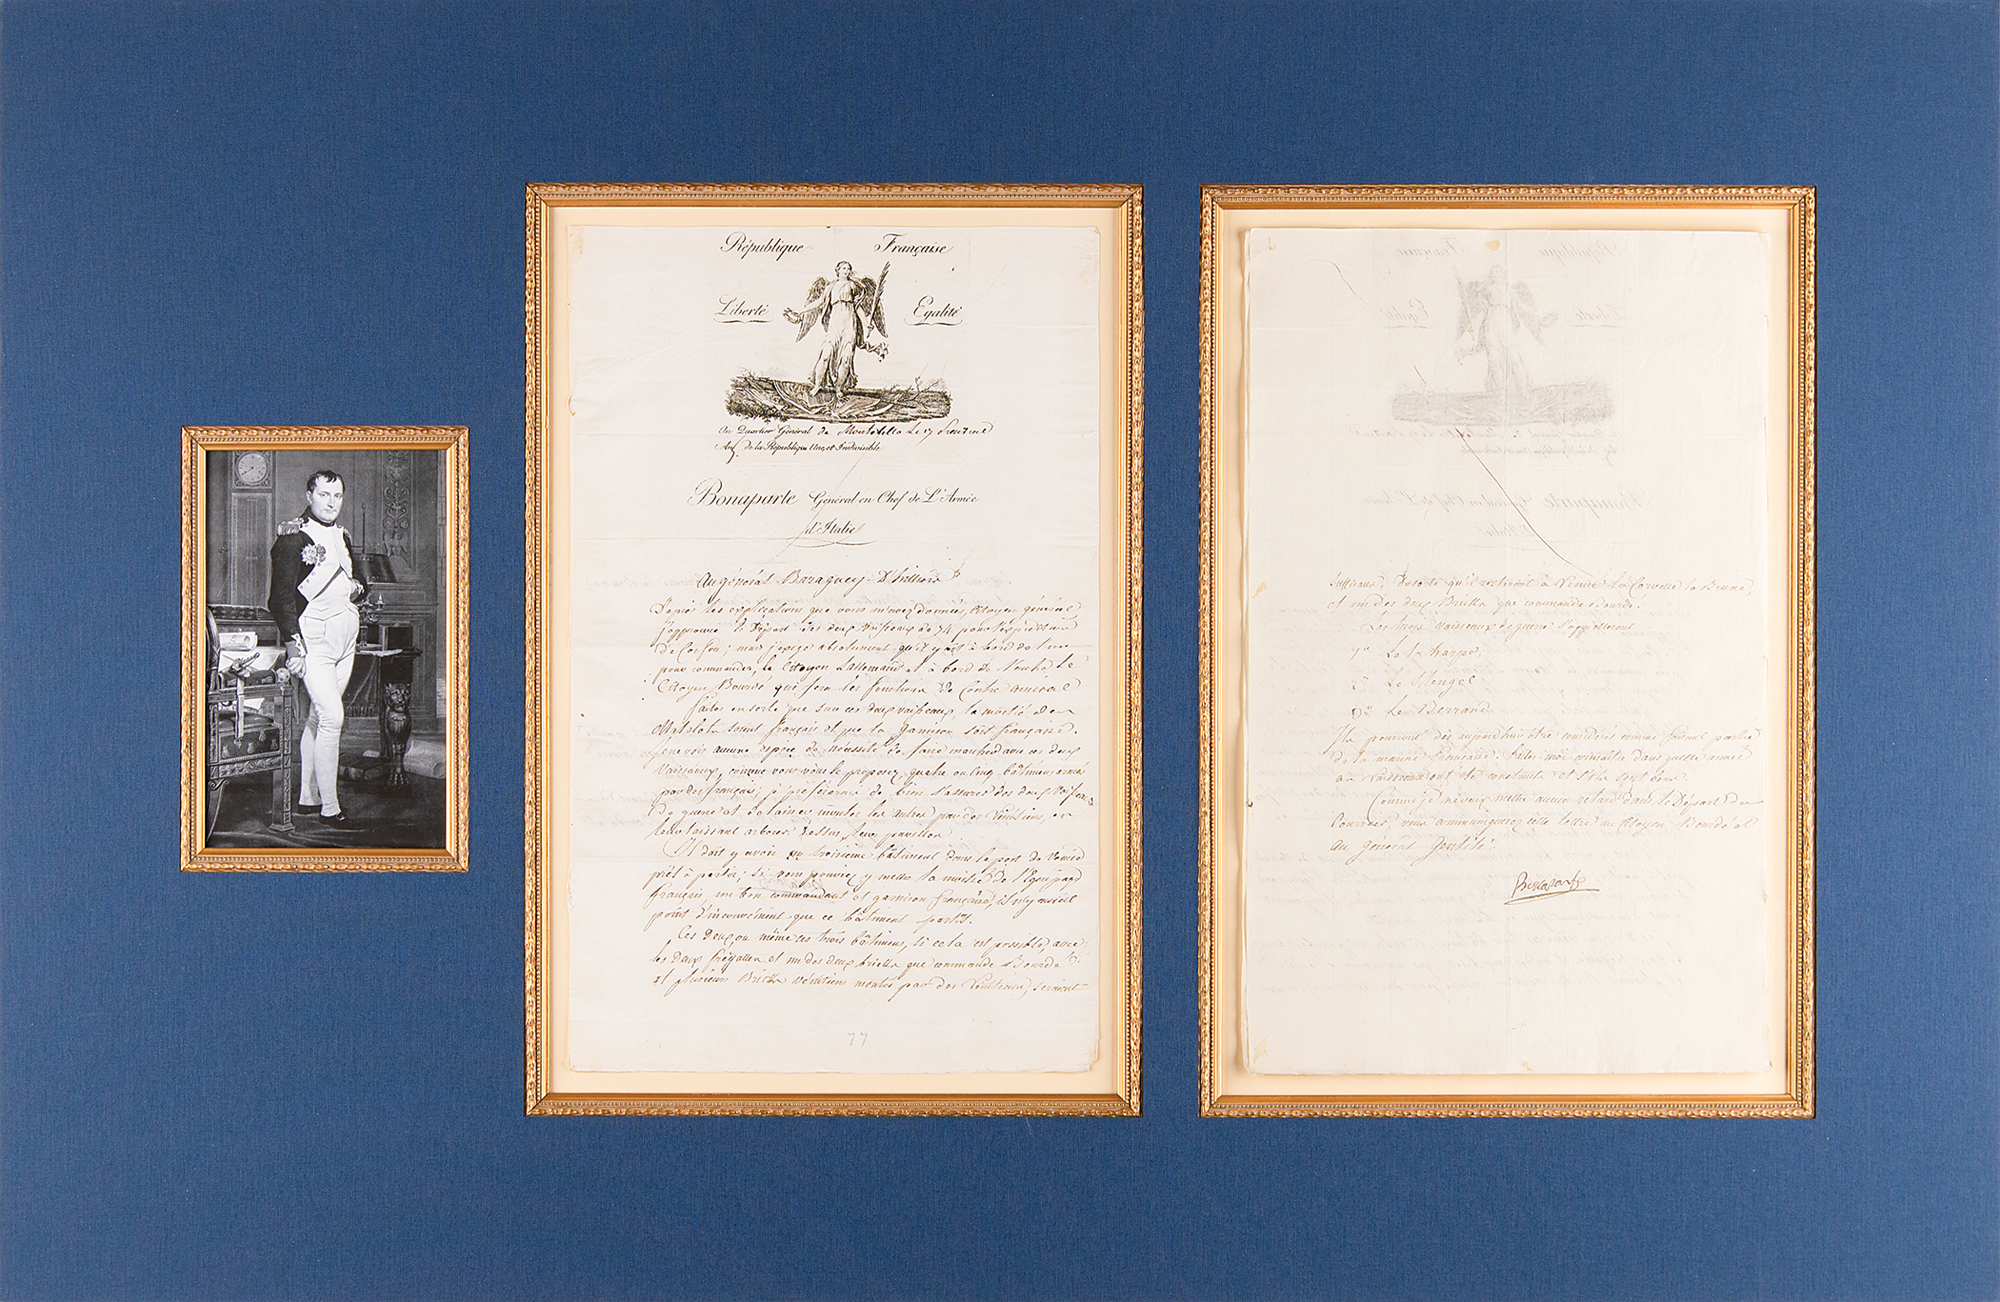 République Française
Liberté Egalité
Au Quartier Général de Montebello Le 17 Prairial
An 5 de la République Une et Indivisible
Bonaparte Général en Chef de L'Armée
d'Italie
Au général Baraguey-D'hilliers
D'après les explications que vous m'avez données, Citoyen général
J'approuve le Départ des deux Vaisseaux de 74 pour l'expédition
de Corfou; mais j'exige absolument qu'il y ait à bord de l'un
pour commander, le Citoyen Lallemand et à bord de l'autre, le
Citoyen Bourdé qui fera les fonctions de Contre amiral
faites en sorte que sur ces deux vaisseaux, la moitié des
Matelots soient français et que la garnison soit française.
Je ne vois aucune espèce de nécessité de faire marcher avec ces deux
Vaisseaux, comme vous vous le proposez, quatre ou cinq bâtiments armés
par des français; je préférerai de bien s'assurer des deux Vaisseaux
de guerre et de laisser montés les autres par des Vénitiens, en
leur laissant arborer dessus, leur pavillon.
Il doit y avoir un troisième bâtiment dans le port de Venise
prêt à partir; si vous pouvez y mettre la moitié de l'équipage
français un bon commandant et garnison française, il n'y aurait
point d'inconvénient que ce bâtiment partît.
Ces deux, ou même ces trois bâtiments, si cela est possible, avec
les deux frégates et un des deux bricks que commande Bourdé
et plusieurs Bricks vénitiens montés par des Vénitiens, seraient
77
suffisans; De sorte qu'il resterait à Venise la Corvette la Brune,
et un des deux Bricks que commande Bourdé.
Les trois Vaisseaux de guerre s'appelleront
1er Le la harpe;
2e Le Stengel
3e Le Berrand
Ils pourront dès aujourd'hui être considérés comme faisant partie
de la marine française. faites-moi connaître dans quelle année
ces Vaisseaux ont été construits et s'ils sont bons.
Comme je ne veux mettre aucun retard dans le Départ des
Courriers, vous communiquerez cette lettre au Citoyen Bourdé et
au général Gentili.
Bonaparte